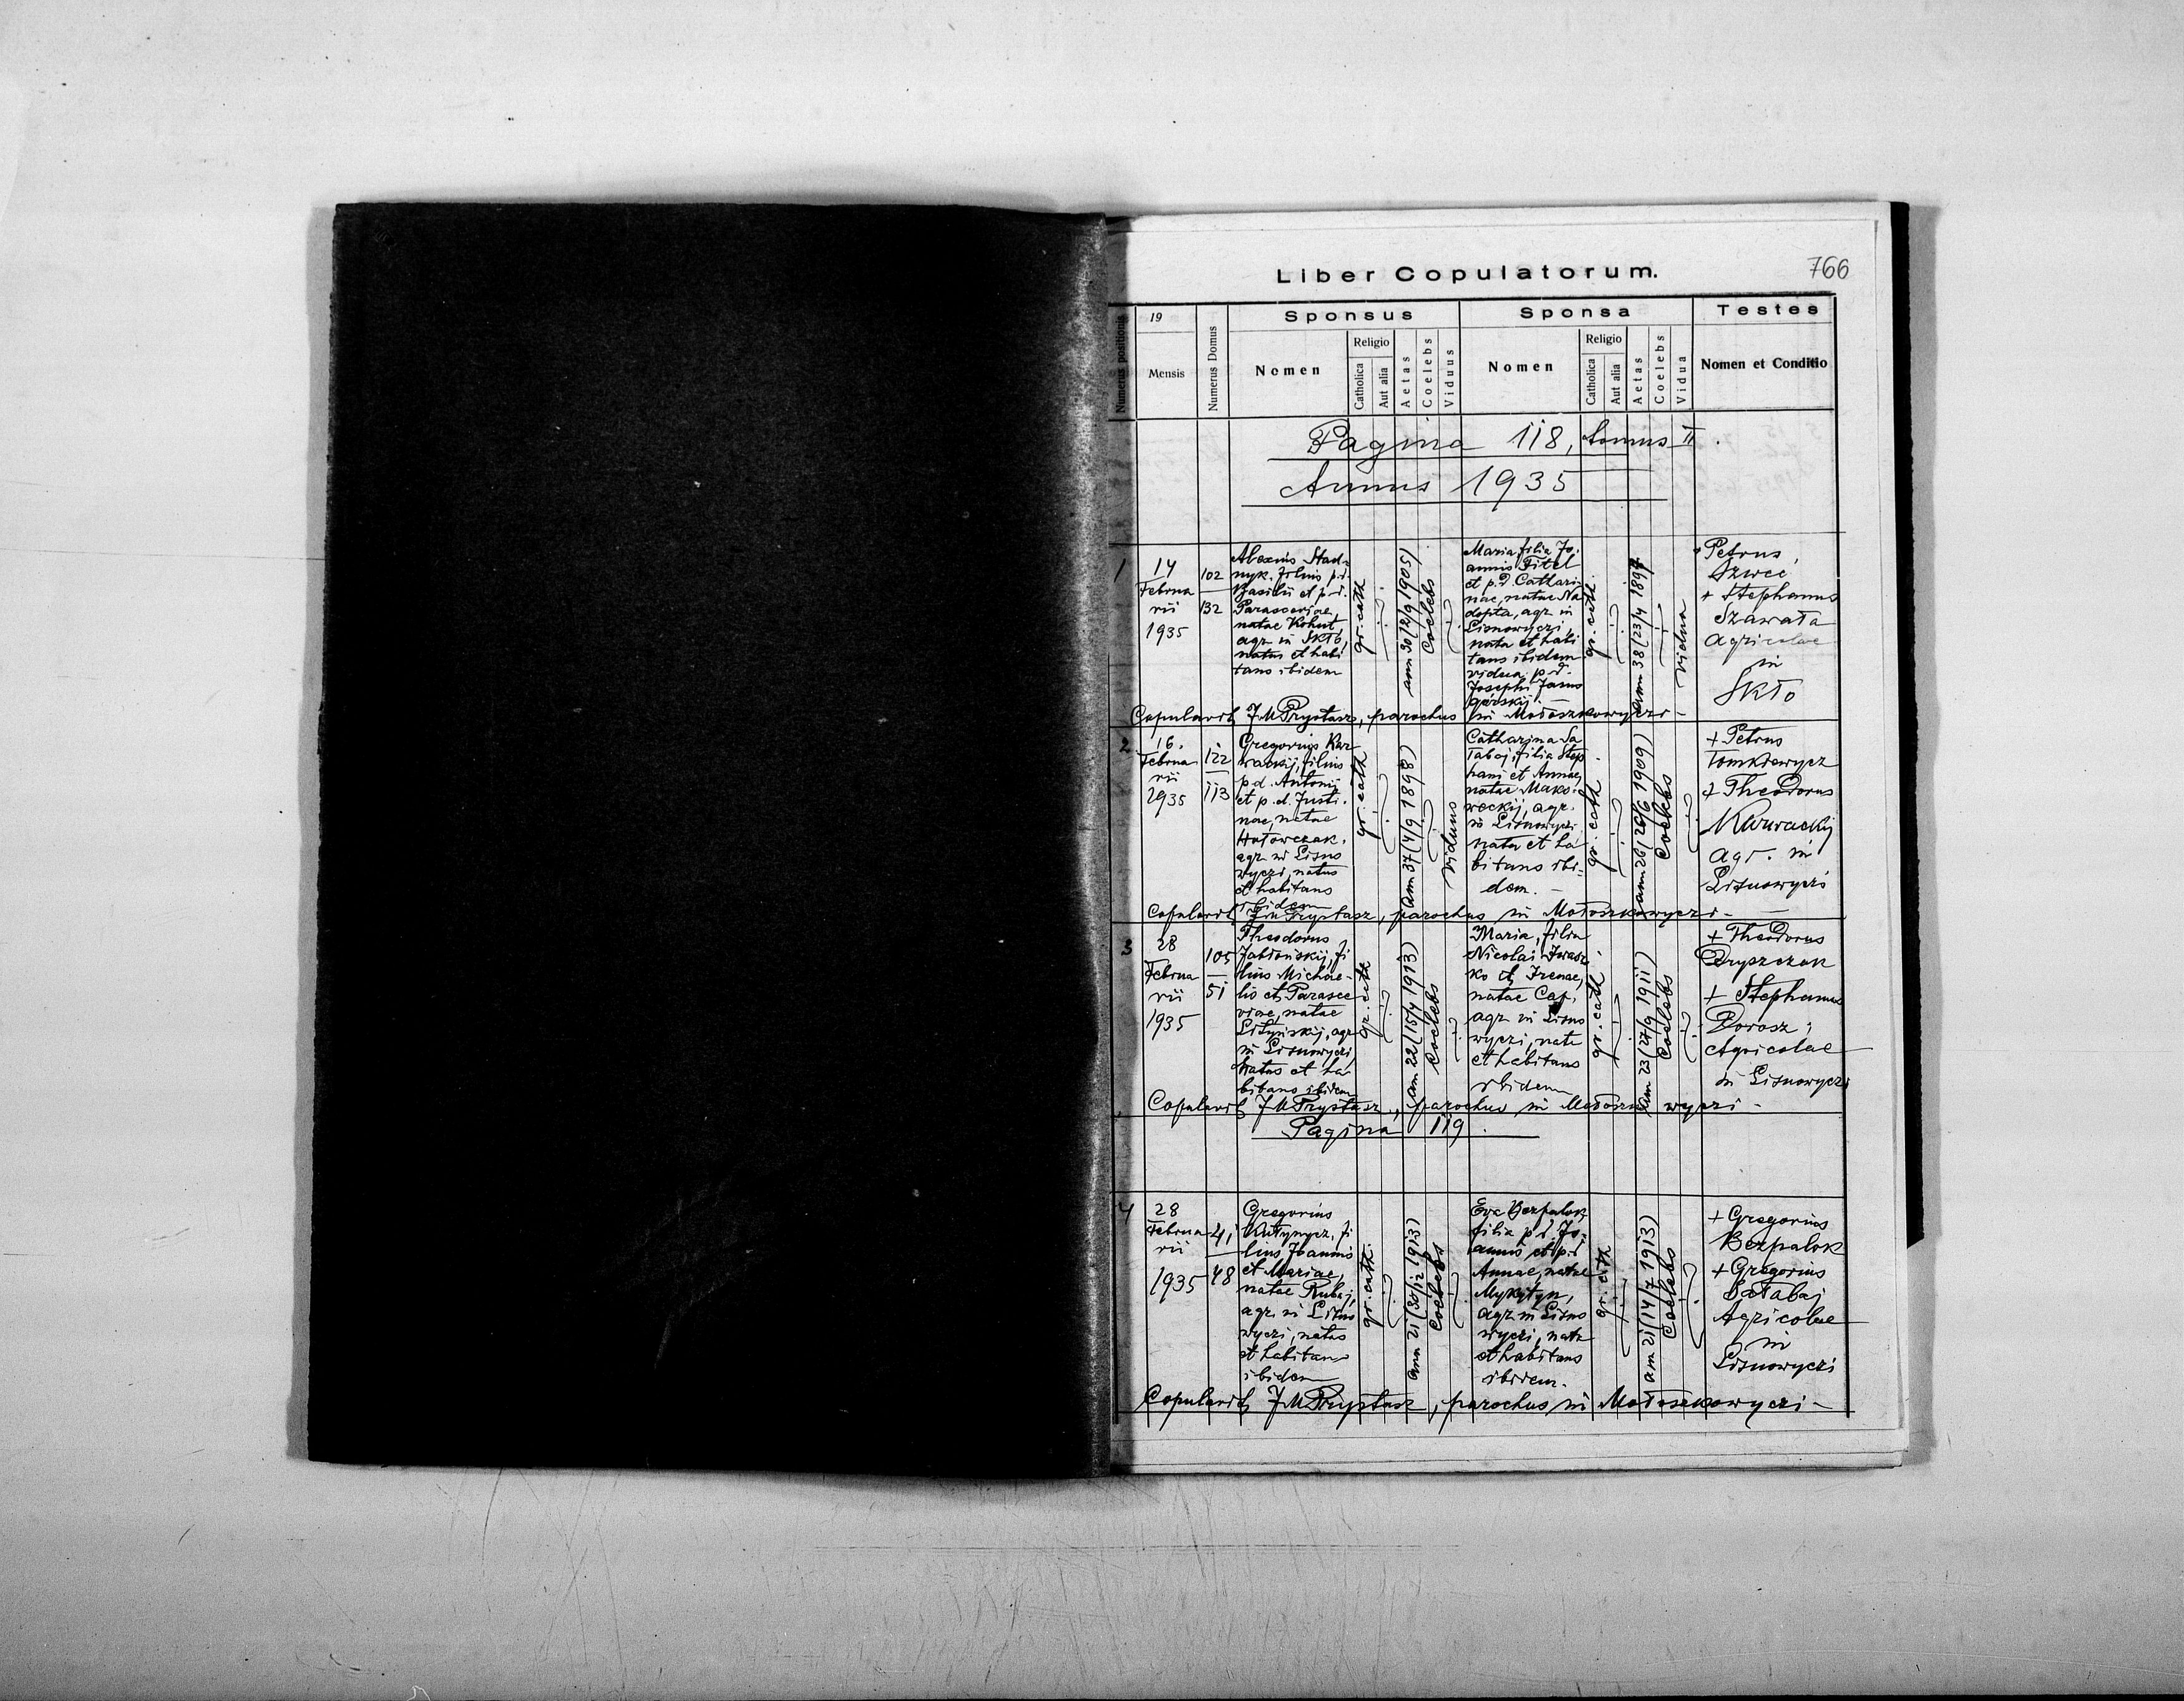 Liber Copulatorum.
766
Numerus positionis
19
Mensis
Numerus Domus
Sponsus
Nomen
Religio
Catholica
Aut alia
Aetas
Coelebs
Viduus
Sponsa
Nomen
Religio
Catholica
Aut alia
Aetas
Coelebs
Vidua
Testes
Nomen et Conditio
Pagina 118, tomus II.
Annus 1935
1
14
Februa
rii
1935
102
132
Alexius Stad-
nyk, filius p.d.
Basilii et p.d.
Parasceviae,
natae Kohut,
agr. in Skło,
natus et habi
tans ibidem
gr. cath
ann 30 (12/9 1905)
Coelebs
Maria, filia Jo-
annis Fitel
et p.d. Cathari-
nae, natae Na
dopta, agr. in
Lisnowyczi,
nata et habi
tans ibidem
vidua p.d.
Josephi Jasno
górskij.
gr. cath.
ann 38 (23/4 1897
vidua
+ Petrus
Szweć
+ Stephanus
Szawała
agricolae
in
Skło
Copulavit J M Prystasz, parochus in Mołoszkowyczi -
2
16.
Februa
rii
1935
122
113
Gregorius Kur
wackij, filius
p.d. Antonij
et p.d. Justi-
nae, natae
Hołowczak.
agr. in Lisno
wyczi, natus
et habitans
ibidem
gr. cath
ann 37 (4/9 1898)
viduus
Catharina Sa
łabaj, filia Step
hani et Annae,
natae Mako-
weckij, agr.
in Lisnowyczi
nata et ha
bitans ibi-
dem. -
gr. cath
ann 26 (26/6 1909)
Coelebs
+ Petrus
Tomkiewycz
+ Theodorus
agr. in
Lisnowyczi
Copulavit J M Prystasz, parochus in Mołoszkowyczi -
3
28
Februa
rii
1935
105
51
Theodorus
Jabłonskij, fi
lius Michae-
lis et Parasce
viae, natae
Lityńskij, agr
in Lisnowyczi,
natus et ha
bitans ibidem
gr. cath
ann 22 (15/4 1913)
Coelebs
Maria, filia
Nicolai Iwasz
ko et Irenae,
natae Cap.
agr. in Lisno
wyczi, nata
et habitans
ibidem
gr. cath
ann 23 (27/9 1911)
Coelebs
+ Theodorus
Dryszczak
+ Stephanus
Dorosz;
Agricolae
in Lisnowyczi
Copulavit J M Prystasz, parochus in Mołoszko wyczi -
Pagina 119.
4
28
Februa
rii
1935
41
48
Gregorius
fi
lius Joannis
et Mariae,
natae Rubaj,
agr. in Lisno
wyczi, natus
et habitans
ibidem
gr. cath.
ann 21 (30/12 1913)
Coelebs
Eva Bezpalok
filia p.d. Jo-
annis et p.d.
Annae, natae
Mykytyn,
agr. in Lisno
wyczi, nata
et habitans
ibidem.
gr. cath
ann 21 (14/7 1913)
Coelebs
+ Gregorius
Bezpalok
+ Gregorius
Sałabaj
Agricolae
in
Lisnowyczi
Copulavit J M Prystasz, parochus in Mołoszkowyczi -